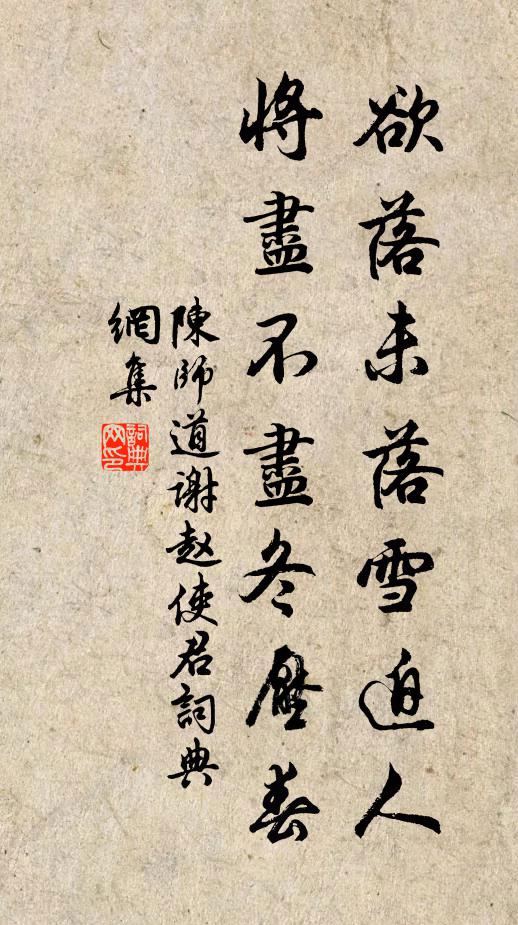 欲落未落雪迫人
將盡不盡冬壓春
陳師道謝赵使君詞典
網集
詞典
网印